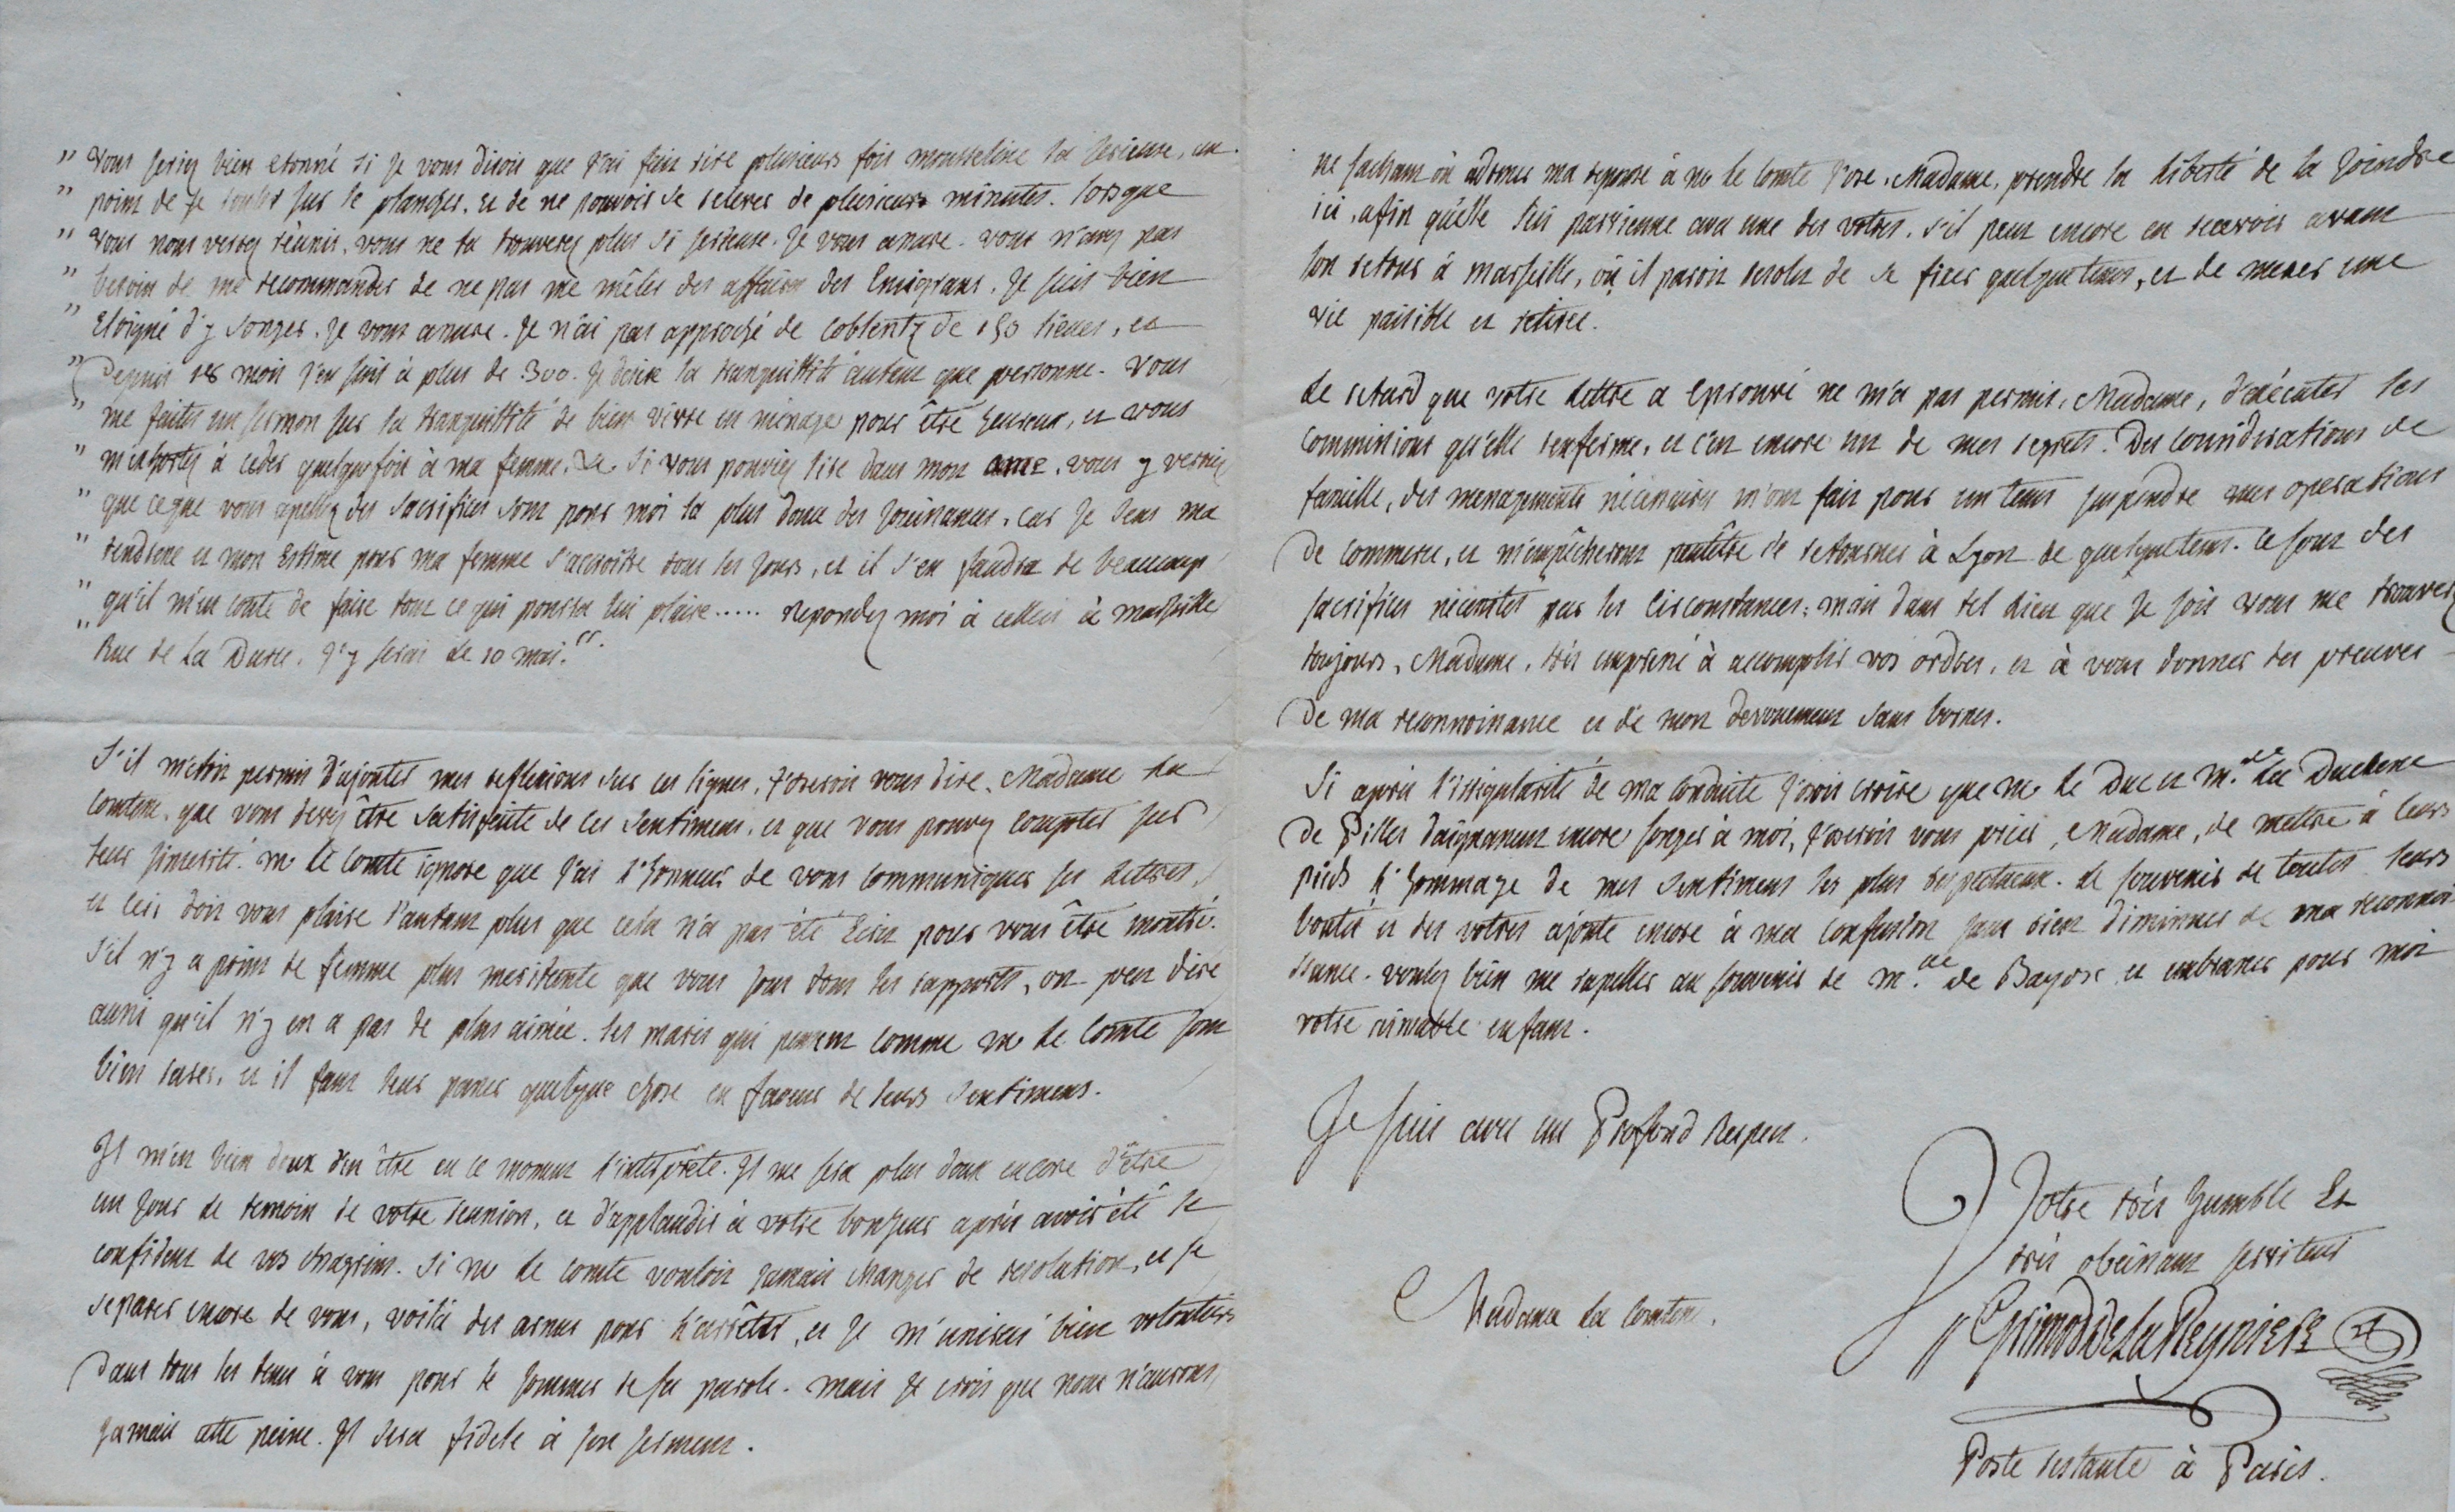 " vous seriez bien etonné si je vous disois que j'ai fait rire plusieurs fois mousseline la serieuse, au
" point de se rouler sur le plancher, et de ne pouvoir se relever de plusieurs minutes. lorsque
" vous nous verrez réunis, vous ne la trouverez plus si serieuse. je vous assure. vous n'avez pas
" besoin de me recommander de ne pas me mêler des affaires des Emigrans. je suis bien
" Eloigné d'y songer. je vous assure. je n'ai pas approché de Coblentz de 150 lieues, et
" Depuis mois j'en suis à plus de 300. je desire la tranquillité autant que personne. vous
" me faites un sermon sur la tranquillité de bien vivre en ménage pour être heureux, et vous
" m'exhortez à ceder quelquefois à ma femme. si vous pouviez lire dans mon ame, vous y verriez
" que ce que vous apellez des sacrifices sont pour moi la plus douce des jouissances, car je sens ma
" tendresse et mon Estime pour ma femme s'accroitre tous les jours, et il s'en faudra de beaucoup
" qu'il m'en coute de faire tout ce qui pourra lui plaire..... repondez moi à celleci à marseille
" Rue de La Darse. j'y serai le 10 mai."
S'il m'étoit permis d'ajouter mes reflexions sur ces lignes, j'oserois vous dire, Madame La
Comtesse, que vous devez être satisfaite de ces sentimens, et que vous pouvez compter sur
leur sincerité. mr le Comte ignore que j'ai l'honneur de vous communiquer ses lettres,
et ceci doit vous plaire d'autant plus que cela n'a pas été Ecrit pour vous être montré.
s'il n'y a point de femme plus meritante que vous sous tous les rapports, on peut dire
aussi qu'il n'y en a pas de plus aimée. les maris qui pensent comme mr le Comte sont
bien rares, et il faut leur passer quelque chose en faveur de leurs sentimens.
Il m'est bien doux d'en être en ce moment l'interprête. Il me sera plus doux encore d'être
un jour le temoin de votre reunion, et d'applaudir à votre bonheur après avoir été le
confident de vos chagrins. si mr le comte vouloit jamais changer de resolution, et se
separer encore de vous, voilà des armes pour l'arrêter, et je m'unirai bien volontiers
Dans tous les tems à vous pour le sommer de sa parole. mais je crois que nous n'aurons
jamais cette peine. Il sera fidele à son serment.
ne sachant où adresser ma reponse à mr le Comte j'ose, Madame, prendre la liberté de la joindre
ici, afin qu'elle lui parvienne avec une des votres, s'il peut encore en recevoir avant
son retour à marseille, où il paroit resolu de se fixer quelque tems, et de mener une
vie paisible et retirée.
Le retard que votre Lettre a Eprouvé ne m'a pas permis, Madame, d'exécuter les
Commissions qu'elle renferme, et c'est encore un de mes regrets. Des Considerations de
famille, des menagements nécessaires m'ont fait pour un tems suspendre mes operations
De Commerce, et m'empêcheront peutêtre de retourner à Lyon de quelque tems. ce sont des
sacrifices nécessités par les Circonstances: mais dans tel Lieu que je sois vous me trouverez
toujours, Madame, très empressé à accomplir vos ordres, et à vous donner des preuves
De ma reconnoissance et de mon devouement sans bornes.
Si après l'irrégularité de ma Conduite j'osois croire que mr Le Duc et m.de La Duchesse
De Pilles daignassent encore songer à moi, j'oserois vous prier, Madame, de mettre à leurs
pieds l'hommage de mes sentimens les plus respectueux. Le souvenir de toutes leurs
bontés et des votres ajoute encore à ma confusion sans rien diminuer de ma reconnois
sance. voulez bien me rapeller au souvenir de m.de de et embrasser pour moi
votre aimable enfant.
Je suis avec un Profond Respect.
Madame La Comtesse,
Votre très humble Et
très obéissant serviteur
Grimod de La Reyniere
Poste restante à Paris.